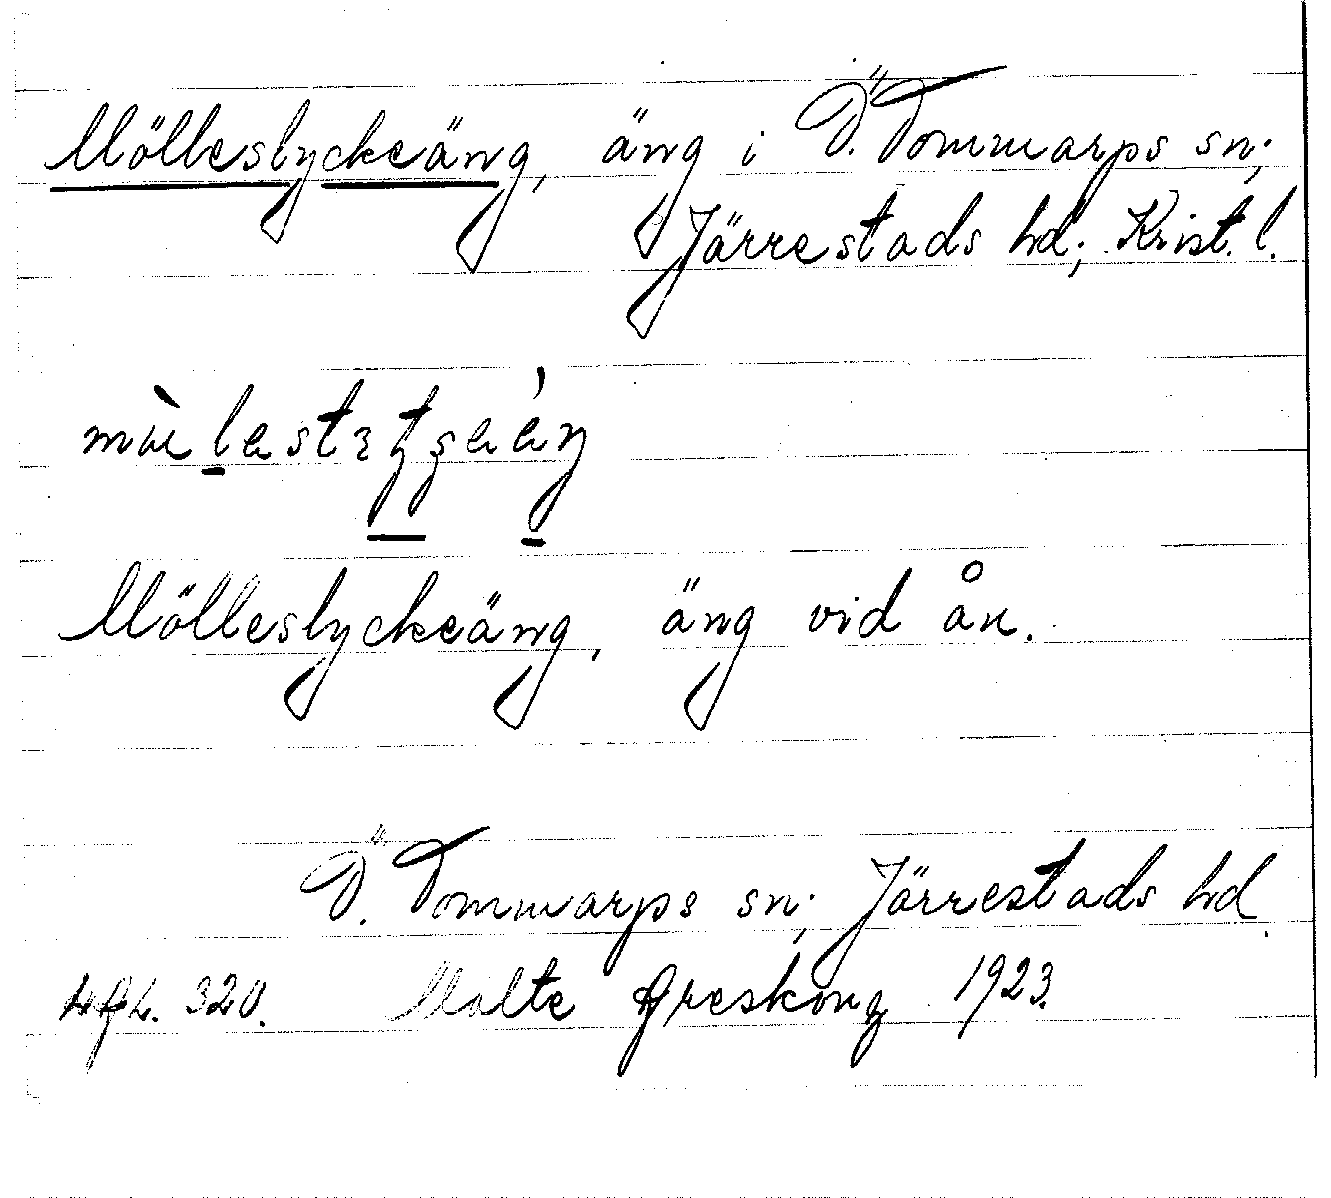 Mölleslyckeäng, äng i Ö. Tommarps sn;
Järrestads hd; Krist. l.
Mölleslyckeäng, äng vid ån.
Ö. Tommarps sn; Järrestads hd.
320. Malte Areskoug 1923.